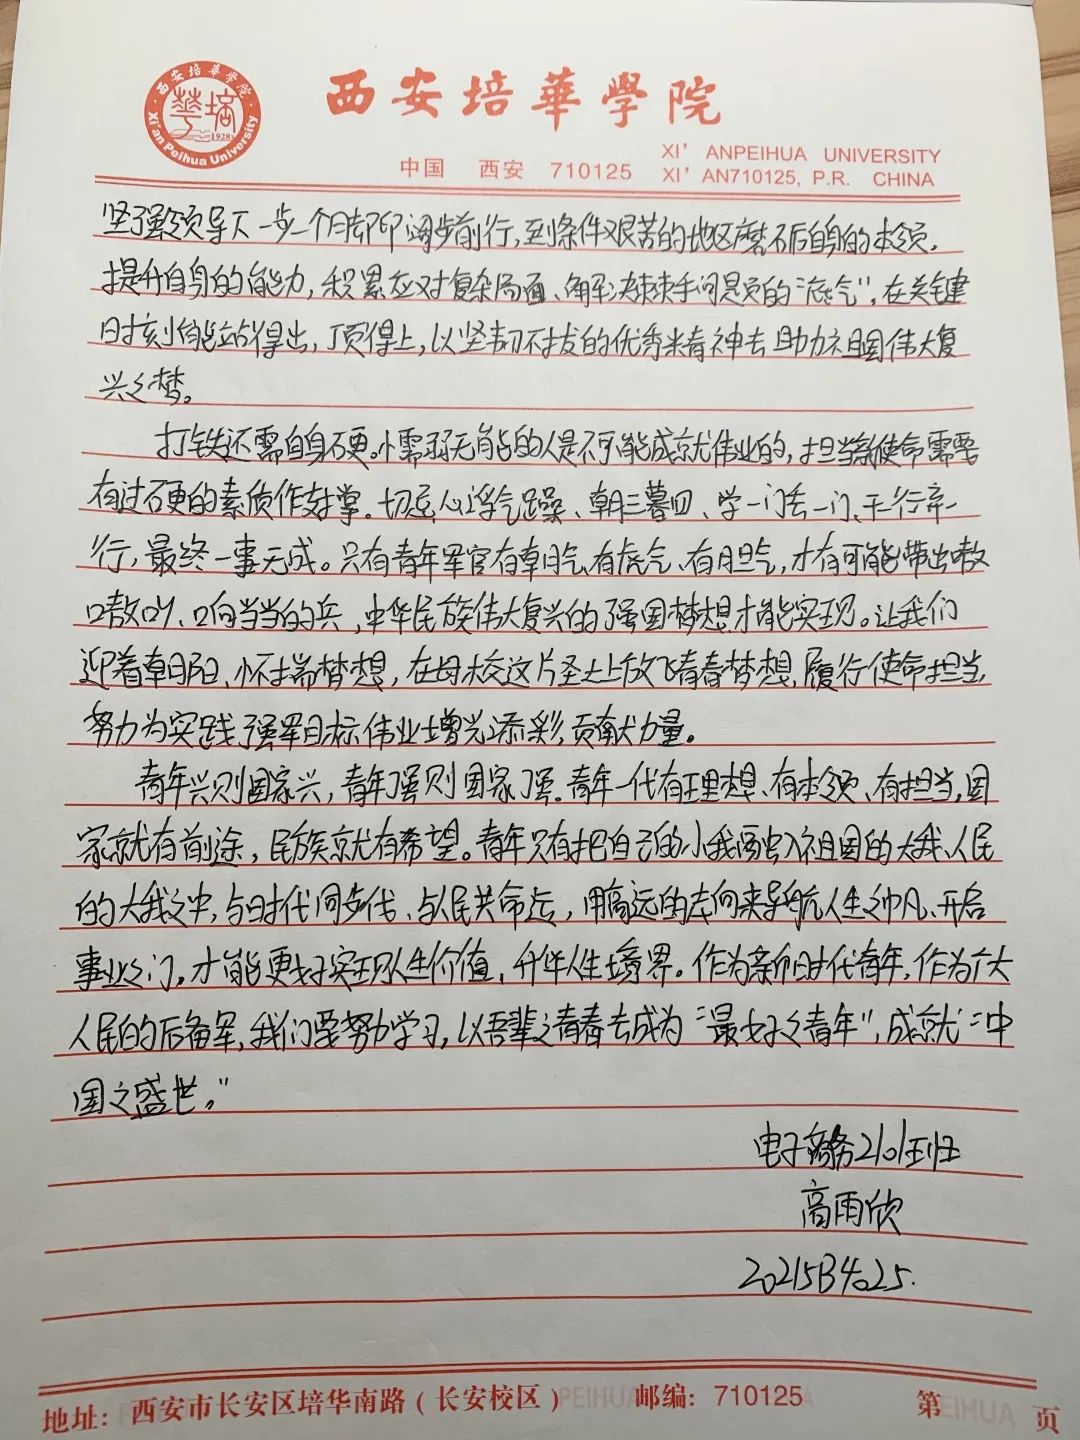 西安培華學院
Xi'an Peihua University
1928
西安培華學院
中国 西安 710125
XI' ANPEIHUA UNIVERSITY
XI' AN710125, P.R. CHINA
坚强领导下一步一个脚印阔步前行,到条件艰苦的地区磨砺自身的本领,
提升自身的能力,积累应对复杂局面、解决棘手问题的“底气”,在关键
时刻能站得出,顶得上,以坚韧不拔的优秀精神去助力祖国伟大复
兴之梦。
打铁还需自身硬。懦弱无能的人是不可能成就伟业的,担当新使命需要
有过硬的素质作支撑。切忌心浮气躁、朝三暮四、学一门丢一门、干一行弃一
行,最终一事无成。只有青年军官有朝气、有虎气、有胆气,才有可能带出嗷
嗷叫、响当当的兵,中华民族伟大复兴的强国梦想才能实现。让我们
迎着朝阳、怀揣梦想,在母校这片圣土上放飞青春梦想,履行使命担当,
努力为实践强军目标伟业增光添彩,贡献力量。
青年兴则国家兴,青年强则国家强。青年一代有理想、有本领、有担当,国
家就有前途,民族就有希望。青年只有把自己的小我融入祖国的大我、人民
的大我之中,与时代同步伐、与人民共命运,用高远的志向来导航人生之帆、开启
事业之门,才能更好实现人生价值,升华人生境界。作为新时代青年,作为广大
人民的后备军,我们要努力学习,以吾辈之青春去成为“最好之青年”,成就“中
国之盛世。”
电子商务2101班
高雨欣
20215134025.
地址:西安市长安区培华南路(长安校区) 邮编:710125 第 页